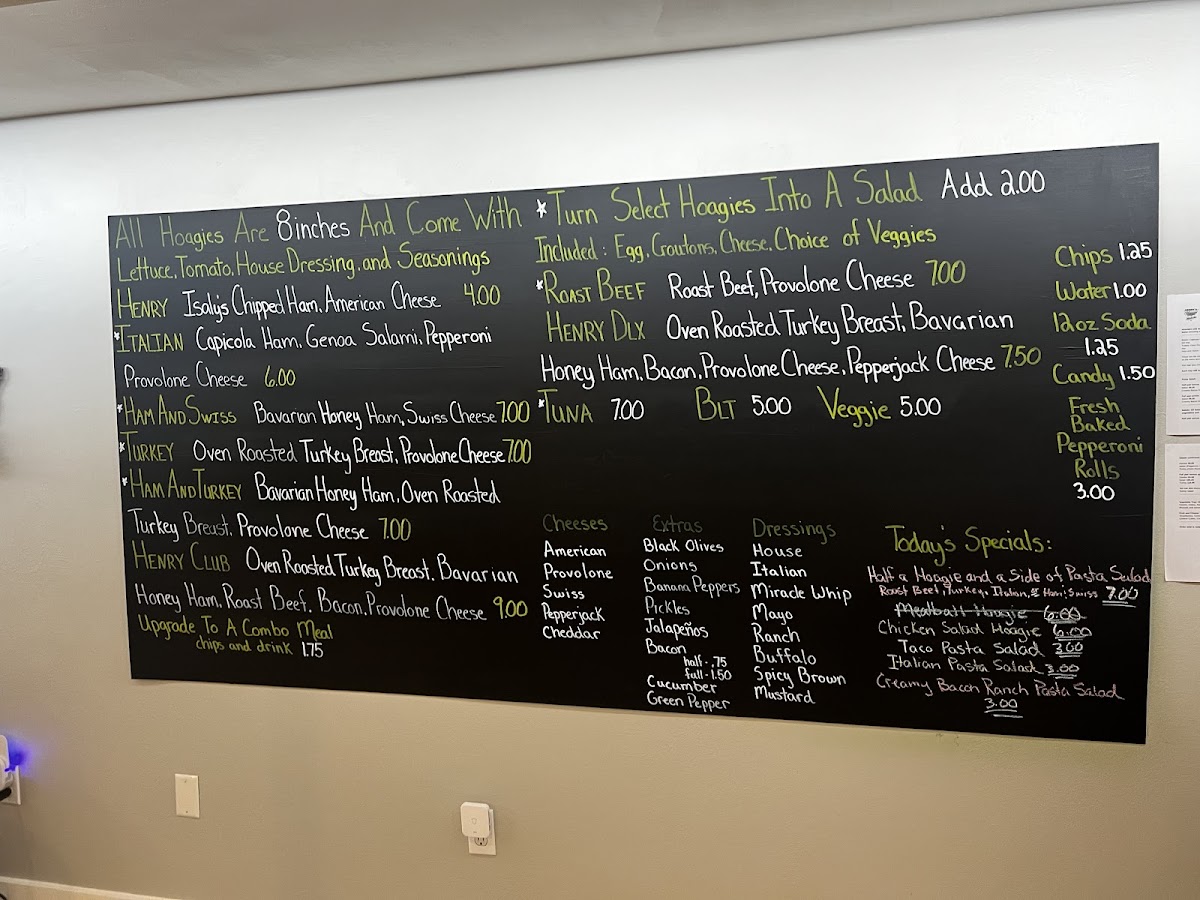 All Hoagies Are 8inches And Come With
Lettuce, Tomato, House Dressing, and Seasonings
HENRY Isaly's Chipped Ham, American Cheese 4.00
*ITALIAN Capicola Ham, Genoa Salami, Pepperoni
Provolone Cheese 6.00
*HAM AND SWISS Bavarian Honey Ham, Swiss Cheese 7.00
*TURKEY Oven Roasted Turkey Breast, Provolone Cheese 7.00
*HAM AND TURKEY Bavarian Honey Ham, Oven Roasted
Turkey Breast, Provolone Cheese 7.00
HENRY CLUB Oven Roasted Turkey Breast, Bavarian
Honey Ham, Roast Beef, Bacon, Provolone Cheese 9.00
Upgrade To A Combo Meal
chips and drink 1.75
*Turn Select Hoagies Into A Salad Add 2.00
Included: Egg, Croutons, Cheese, Choice of Veggies
*ROAST BEEF Roast Beef, Provolone Cheese 7.00
HENRY DLX Oven Roasted Turkey Breast, Bavarian
Honey Ham, Bacon, Provolone Cheese, Pepperjack Cheese 7.50
*TUNA 7.00 BLT 5.00 Veggie 5.00
Chips 1.25
Water 1.00
12oz Soda
1.25
Candy 1.50
Fresh
Baked
Pepperoni
Rolls
3.00
Cheeses
American
Provolone
Swiss
Pepperjack
Cheddar
Extras
Black Olives
Onions
Banana Peppers
Pickles
Jalapeños
Bacon
half - .75
full - 1.50
Cucumber
Green Pepper
Dressings
House
Italian
Miracle Whip
Mayo
Ranch
Buffalo
Spicy Brown
Mustard
Today's Specials:
Half a Hoagie and a Side of Pasta Salad
Roast Beef, Turkey, Italian, or Ham, Swiss 7.00
Meatball Hoagie 6.00
Chicken Salad Hoagie 6.00
Taco Pasta Salad 3.00
Italian Pasta Salad 3.00
Creamy Bacon Ranch Pasta Salad
3.00